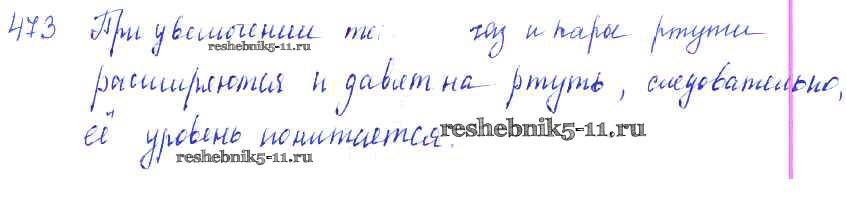 473 При увеличении те газ и пары ртути
reshebnik5-11.ru
расширяются и давят на ртуть, следовательно,
её уровень понижается.
reshebnik5-11.ru
reshebnik5-11.ru